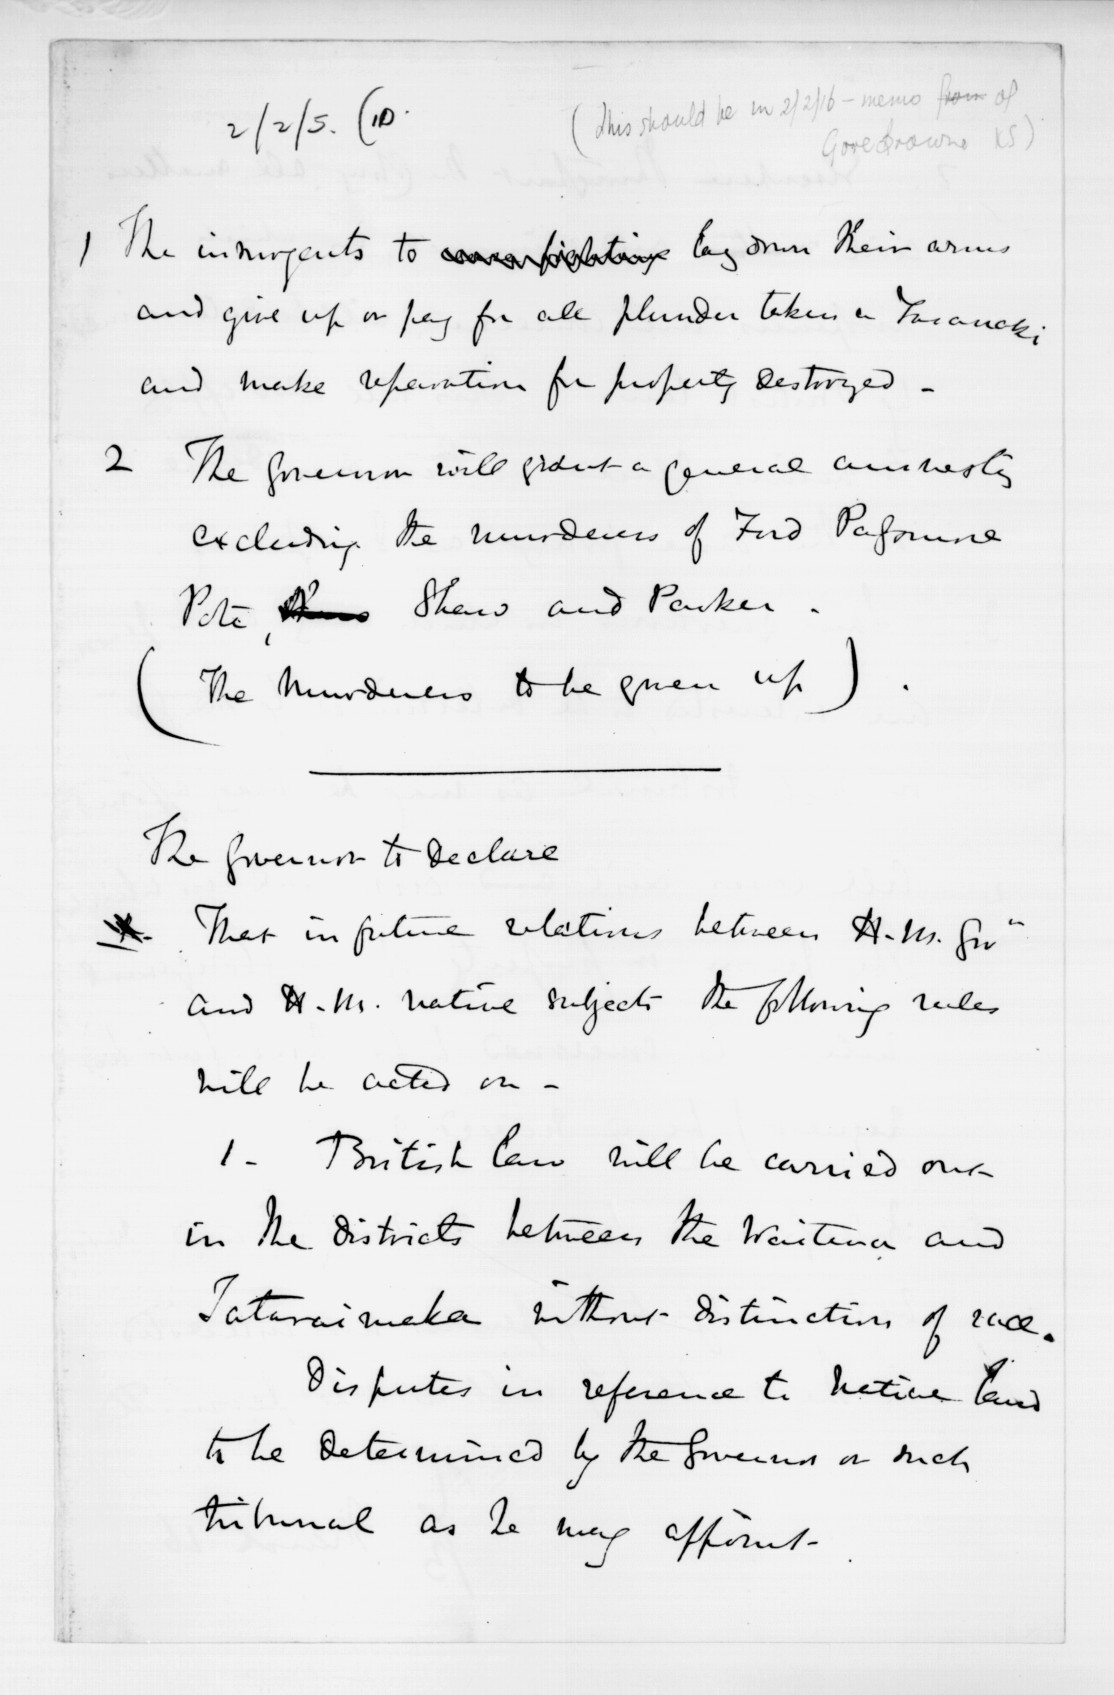 2/2/5. (10.
(This should be in 2/2/16 - memo from of
Gore Browne KS)
1 The insurgents to cease fighting lay down their arms
and give up or pay for all plunder taken in Taranaki
and make reparation for property destroyed -
2 The Governor will grant a general amnesty
excluding the murderers of Ford Passmore
Pote, Shaw and Parker.
(The murderers to be given up).
The Governor to declare
That in future relations between H.M. Govt
and H.M. native subjects the following rules
will be acted on -
1 - British law will be carried out
in the districts between the Waitara and
Tataraimaka without distinction of race.
Disputes in reference to native land
to be determined by the Governor or such
tribunal as he may appoint -